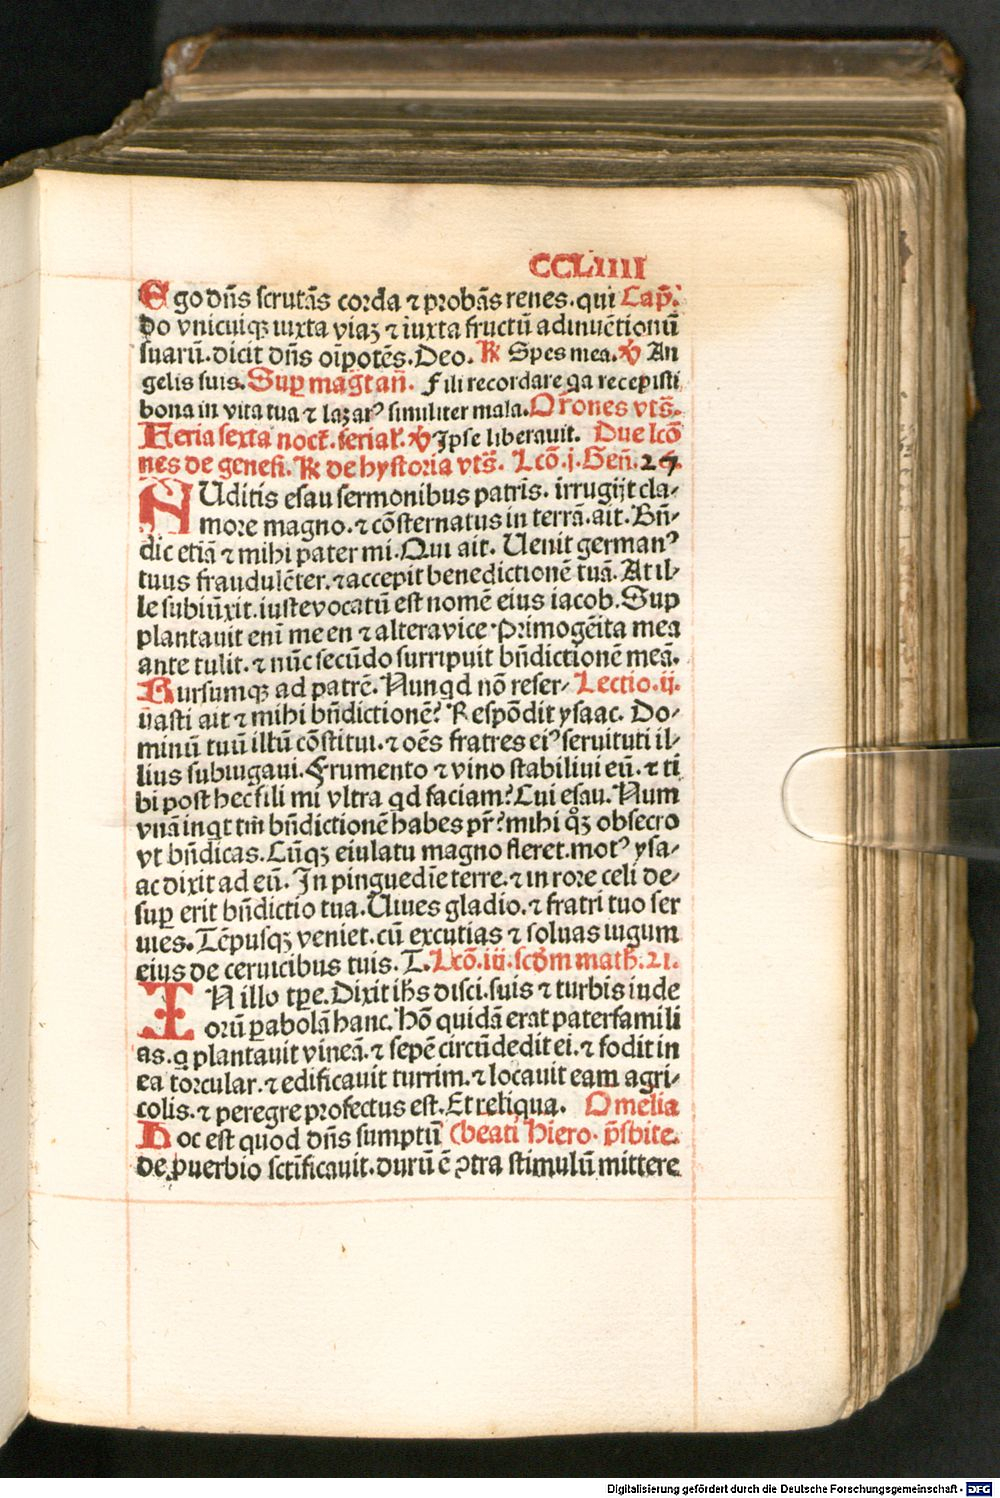 CCLIIII
Ego dn̄s scrutās corda ⁊ probās renes. qui Cap̄.
do vnicuiqꝫ iuxta viaꝫ ⁊ iuxta fructū adinuētionū
suarū. dicit dn̄s oīpotēs. Deo. ℟ Spes mea. ℣ An
gelis suis. Suꝑ mag̅t añ. Fili recordare qa recepisti
bona in vita tua ⁊ lazarꝰ similiter mala. Orones vts̄.
Feria sexta noct̄. ferial̄. ℣ Ipse liberauit. Due lcō
nes de genesi. ℟ de hystoria vts̄. Lcō. j. Gen̄. 27.
AUditis esau sermonibus patris. irrugijt cla-
more magno. ⁊ cōsternatus in terrā. ait. Bn̄-
dic etiā ⁊ mihi pater mi. Qui ait. Uenit germanꝰ
tuus fraudulēter. ⁊ accepit benedictionē tuā. At il-
le subiūxit. iuste vocatū est nomē eius iacob. Sup
plantauit enī me en ⁊ altera vice. Primogēita mea
ante tulit. ⁊ nūc secūdo surripuit bn̄dictionē meā.
Rursumqꝫ ad patrē. Nunqd nō reser- Lectio. ij.
uasti ait ⁊ mihi bn̄dictionē? Respōdit ysaac. Do-
minū tuū illū cōstitui. ⁊ oēs fratres eiꝰ seruituti il-
lius subiugaui. Frumento ⁊ vino stabiliui eū. ⁊ ti
bi post hec fili mi vltra qd faciam? Cui esau. Num
vnā inqt tm̄ bn̄dictionē habes pr̄? mihi qꝫ obsecro
vt bn̄dicas. Cūqꝫ eiulatu magno fleret. motꝰ ysa-
ac dixit ad eū. In pinguedīe terre. ⁊ in rore celi de-
suꝑ erit bn̄dictio tua. Uiues gladio. ⁊ fratri tuo ser
uies. Tēpusqꝫ veniet. cū excutias ⁊ soluas iugum
eius de ceruicibus tuis. T. Lcō. iij. scd̄m math̄. 21.
IN illo tꝑe. Dixit ih̄s disci. suis ⁊ turbis iude
orū ꝑabolā hanc. Hō quidā erat paterfamili
as. q plantauit vineā. ⁊ sepē circūdedit ei. ⁊ fodit in
ea torcular. ⁊ edificauit turrim. ⁊ locauit eam agri-
colis. ⁊ peregre profectus est. Et reliqua. Omelia
Hoc est quod dn̄s sumptū (beati Hiero. p̄sbite.
de ꝓuerbio sctificauit. durū ē ꝯtra stimulū mittere
Digitalisierung gefördert durch die Deutsche Forschungsgemeinschaft - DFG